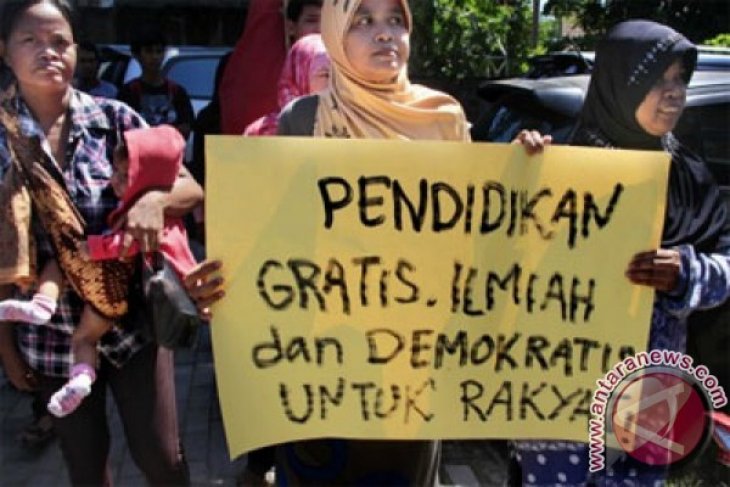 PENDIDIKAN
GRATIS. ILMIAH
dan DEMOKRATI
UNTUK RAKYA
antaranews.com